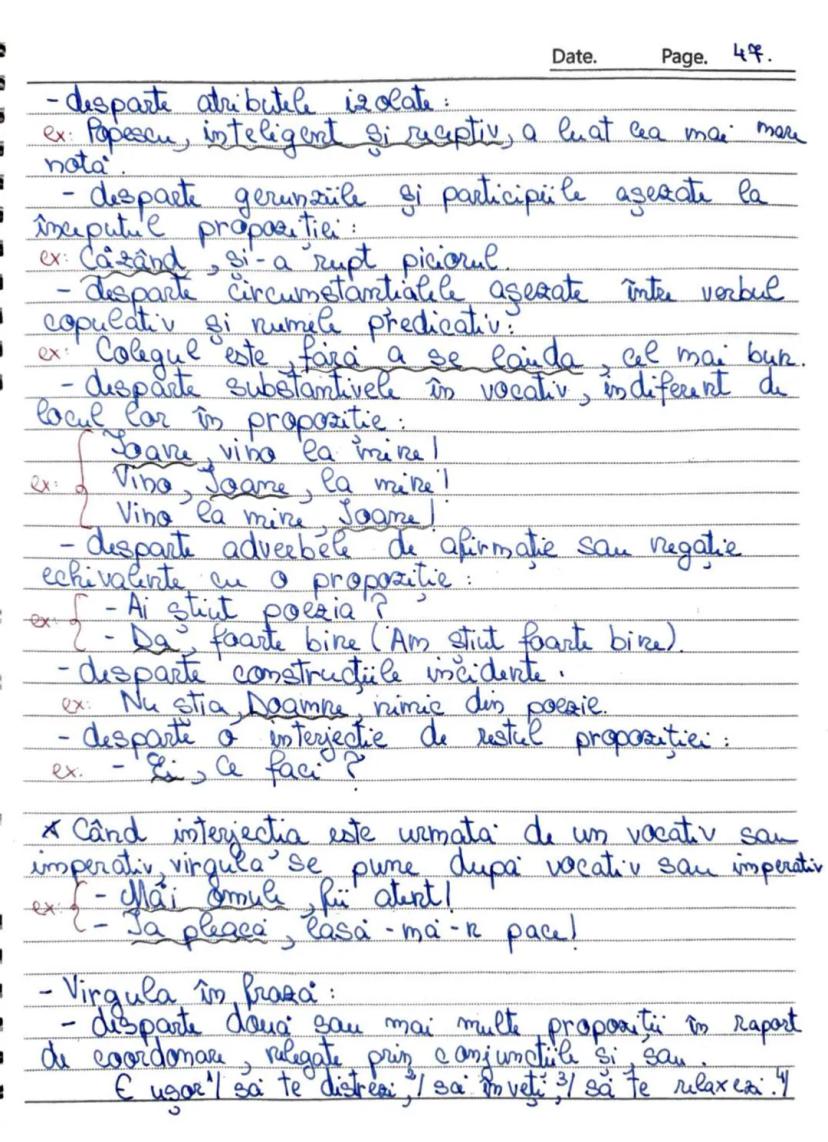 Date. Page. 47.
- desparte atributele izolate:
ex: Popescu, inteligent și receptiv, a luat cea mai mare
notă.
- desparte gerunziile și participiile așezate la
începutul propoziției:
ex: Căzând, și-a rupt piciorul.
- desparte circumstanțialele așezate între verbul
copulativ și numele predicativ:
ex: Colegul este, fără a se lăuda, cel mai bun.
- desparte substantivele în vocativ, indiferent de
locul lor în propoziție:
Ioane, vino la mine!
ex: Vino, Ioane, la mine!
Vino la mine, Ioane!
- desparte adverbele de afirmație sau negație
echivalente cu o propoziție:
ex: - Ai știut poezia?
- Da, foarte bine (Am știut foarte bine).
- desparte construcțiile incidente.
ex: Nu știa, Doamne, nimic din poezie.
- desparte o interjecție de restul propoziției:
ex. - Ei, ce faci?
* Când interjecția este urmată de un vocativ sau
imperativ, virgula se pune după vocativ sau imperativ
ex: - Măi omule, fii atent!
- Ia pleacă, lasă-mă-n pace!
- Virgula în frază:
- desparte două sau mai multe propoziții în raport
de coordonare, nelegate prin conjuncțiile și, sau.
E ușor 1/ să te distrezi, 2/ să înveți, 3/ să te relaxezi. 4/